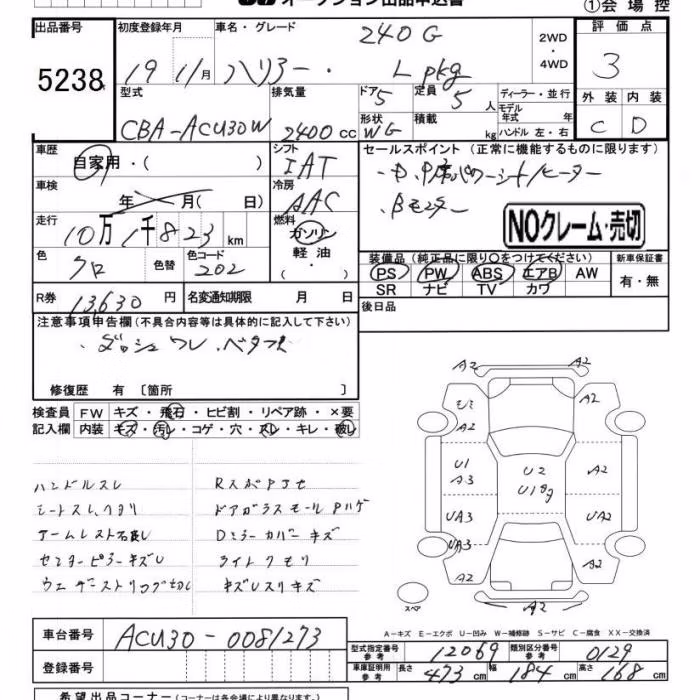 オークション出品申込書
①会場控
出品番号 初度登録年月 車名・グレード 240G 2WD・4WD 評価点
5238 19 11月 ハリアー・ L pkg 3
型式 排気量 ドア 5 定員 5人 ディーラー・並行 外装 内装
CBA-ACU30W 2400cc 形状 WG 積載 kg モデル年式 年 ハンドル 左・右 C D
車歴 自家用・( ) シフト IAT セールスポイント (正常に機能するものに限ります)
車検 年 月( 日) 冷房 AAC
走行 10万1千823km 燃料 ガソリン・軽油・ NOクレーム・売切
色 クロ 色替 色コード 202 装備品(純正品に限り○をつけてください) 新車保証書
PS PW ABS エアB AW 有・無
SR ナビ TV カワ
R券 13,630円 名変通知期限 月 日 後日品
注意事項申告欄(不具合内容等は具体的に記入して下さい)
・ダッシュワレ・ベタツキ
修復歴 有 〔箇所 〕
検査員記入欄 FW キズ・飛石・ヒビ割・リペア跡・×要
内装 キズ・汚レ・コゲ・穴・スレ・キレ・破レ
ハンドルスレ
シートスレ,ヘタリ ドアガラスモールPハゲ
アームレスト不良し Dミラーカバーキズ
センターピラーキズし ライトクモリ
キズレスリキズ
A2 A2
A2 A2
A2
U1 A3 U2 A2
UA3 UA2
UA3
A2 A2
A2
スペア
A-キズ E-エクボ U-凹み W-補修跡 S-サビ C-腐食 XX-交換済
車台番号 ACU30-0081273
登録番号
型式指定番号 参考 12069 類別区分番号 参考 0129
車庫証明用 参考 長さ 473cm 幅 184cm 高さ 168cm
希望出品コーナー(コーナーは各会場により異なります。)